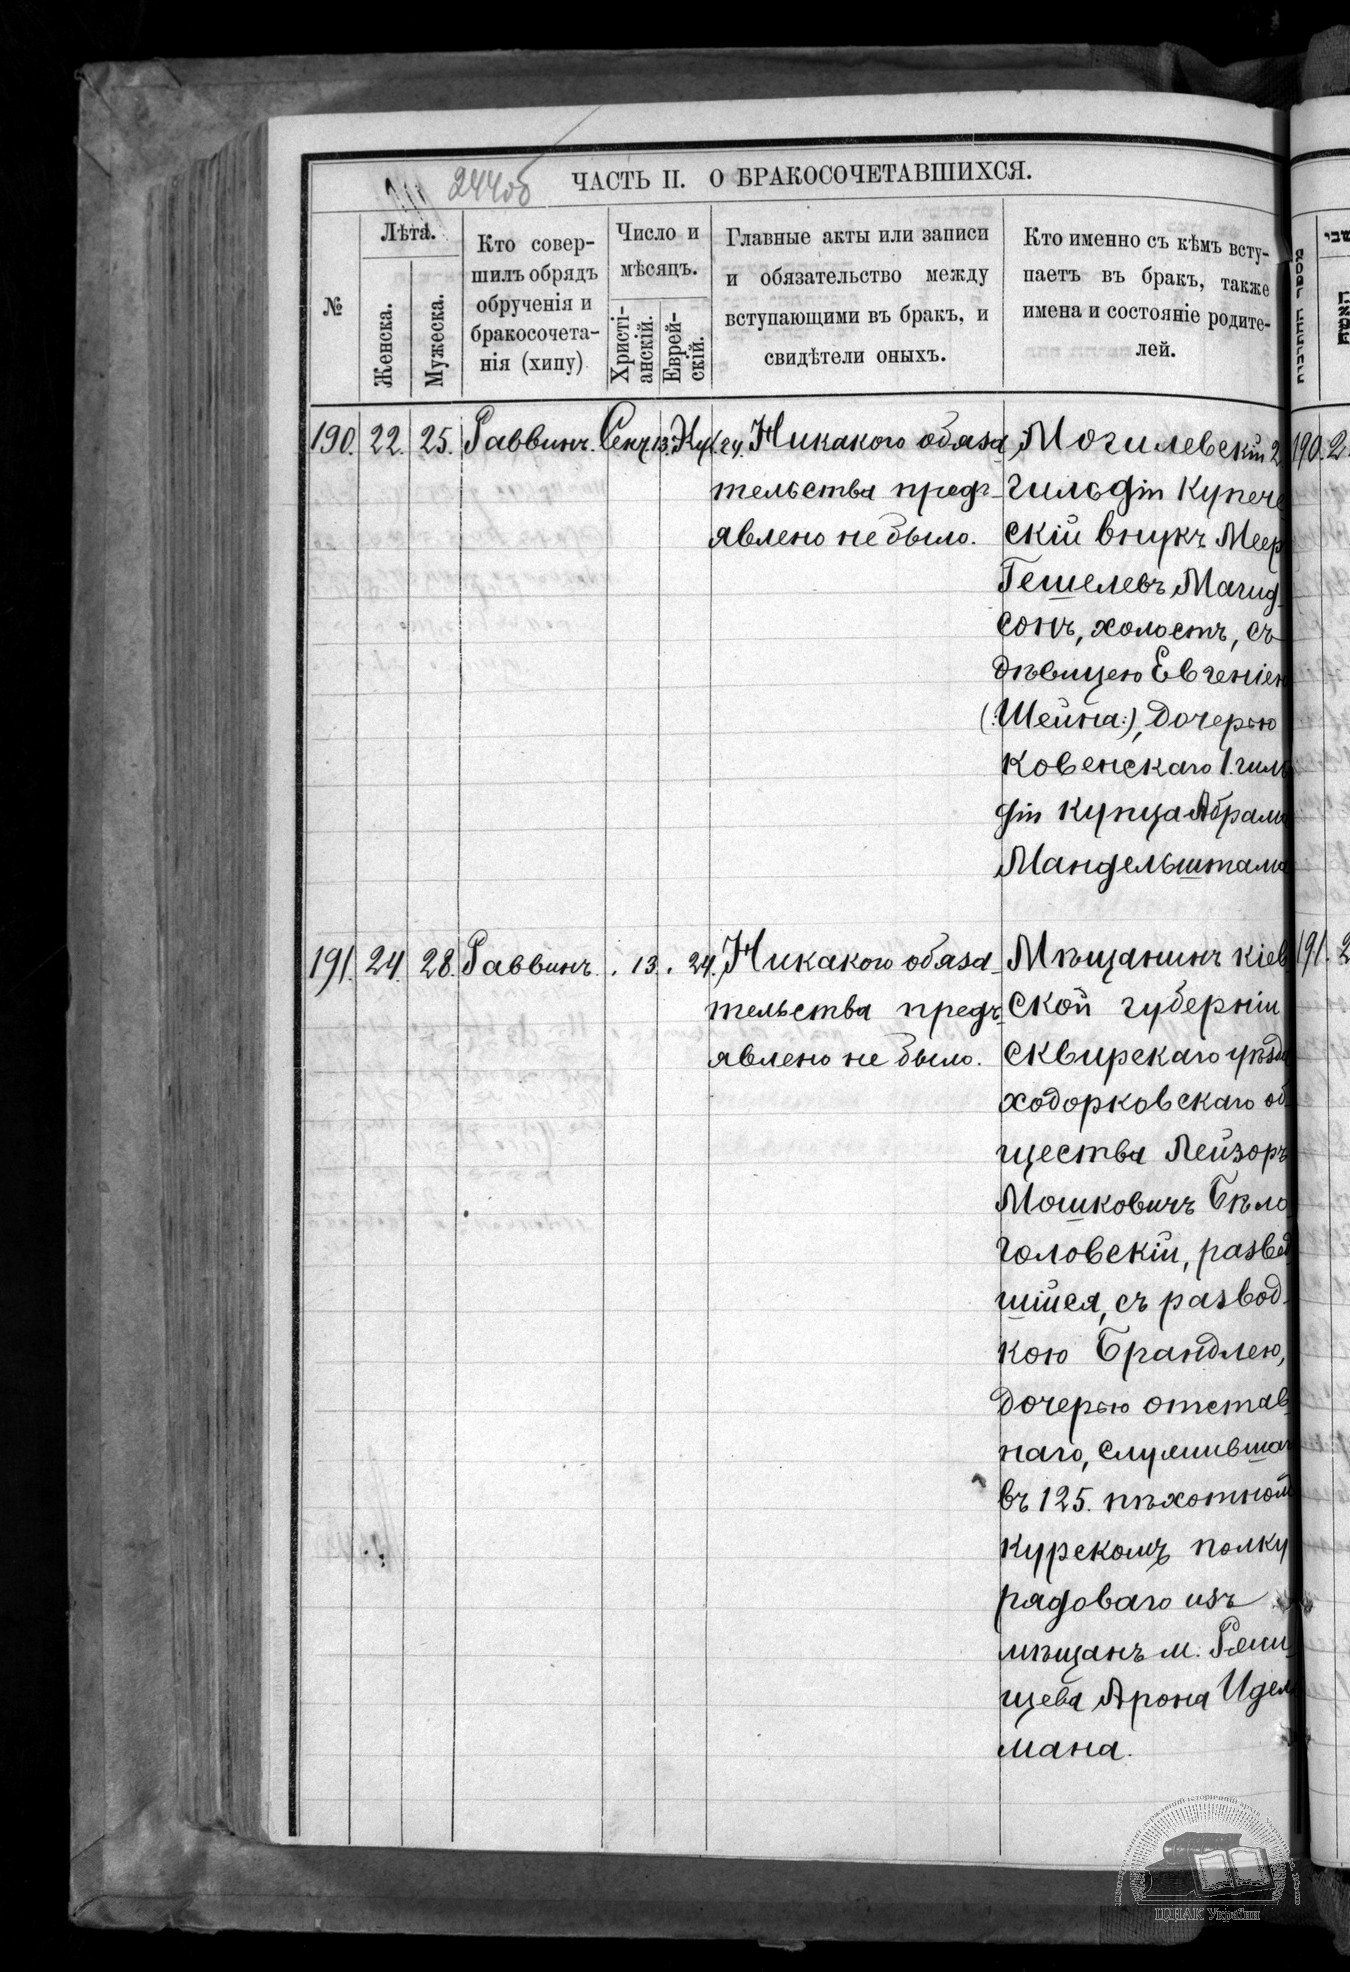 244об
ЧАСТЬ II. О БРАКОСОЧЕТАВШИХСЯ.
№
Лѣта.
Женска.
Мужеска.
Кто совер-
шилъ обрядъ
обрученія и
бракосочета-
нія (хипу)
Число и
мѣсяцъ.
Христі-
анскій.
Еврей-
скій.
Главные акты или записи
и обязательство между
вступающими въ бракъ, и
свидѣтели оныхъ.
Кто именно съ кѣмъ всту-
паетъ въ бракъ, также
имена и состояніе родите-
лей.
190. 22. 25. Раввинъ. Сент. 13. 24. Никакого обяза-
тельства предъ-
явлено не было.
Могилевскій 2
гильдіи купече
скій внукъ Меер
Гешелевъ Магид-
сонъ, холостъ, съ
дѣвицею Евгеніею
(:Шейна:), дочерью
Ковенскаго 1. гиль
діи купца Абрама
Мандельштама
190. 2
191. 24. 28. Раввинъ. 13. 24. Никакого обяза-
тельства предъ-
явлено не было.
Мѣщанинъ кіев
ской губерніи
сквирскаго уѣзда
ходорковскаго об-
щества Лейзоръ
Мошковичъ Бѣло-
головскій, развед
шійся, съ развод-
кою Брандлею,
дочерью отстав-
наго, служившаго
въ 125. пѣхотном
Курскомъ полку
рядоваго изъ
мѣщанъ м. Ржи-
щева Арона Идел
мана.
191. 2
ЦДІАК України